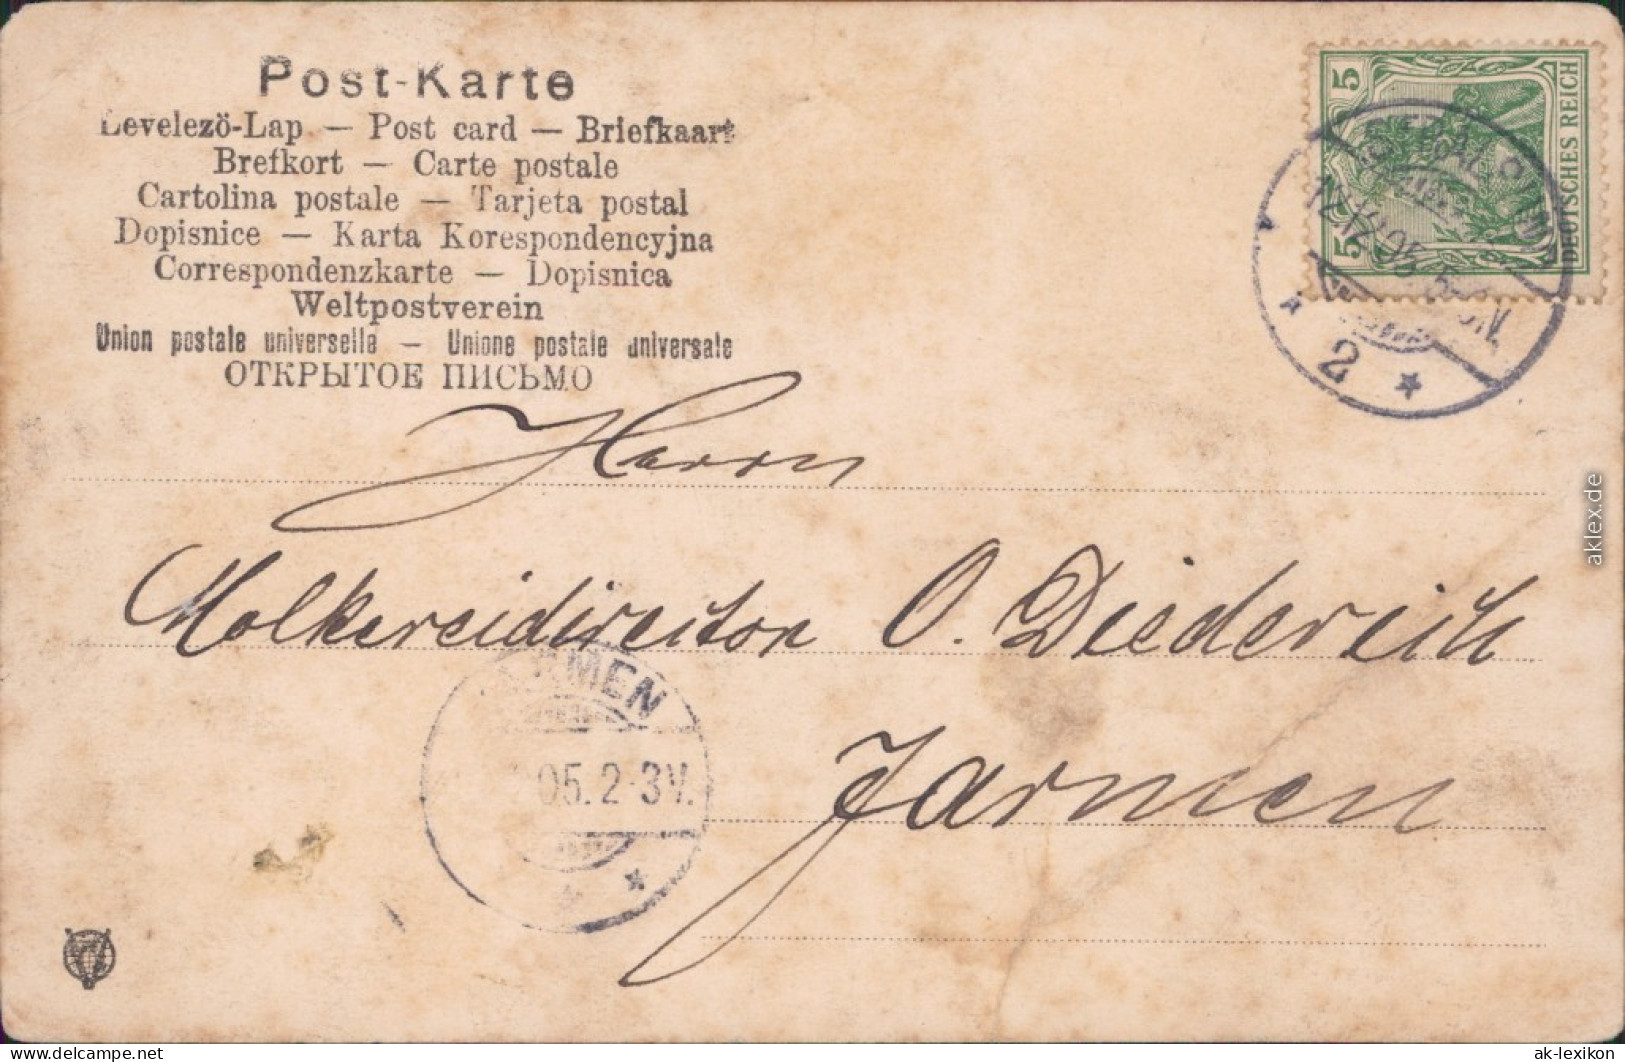 Post-Karte
Levelezö-Lap — Post card — Briefkaart
Brefkort — Carte postale
Cartolina postale — Tarjeta postal
Dopisnice — Karta Korespondencyjna
Correspondenzkarte — Dopisnica
Weltpostverein
Union postale universelle — Unione postale universale
ОТКРЫТОЕ ПИСЬМО
5
5
DEUTSCHES REICH
12.12.05. 5-6N.
2
Herrn
Molkereidirektor O. Diederich
Jarmen
JARMEN
05. 2-3V.
aklex.de
www.delcampe.net
ak-lexikon